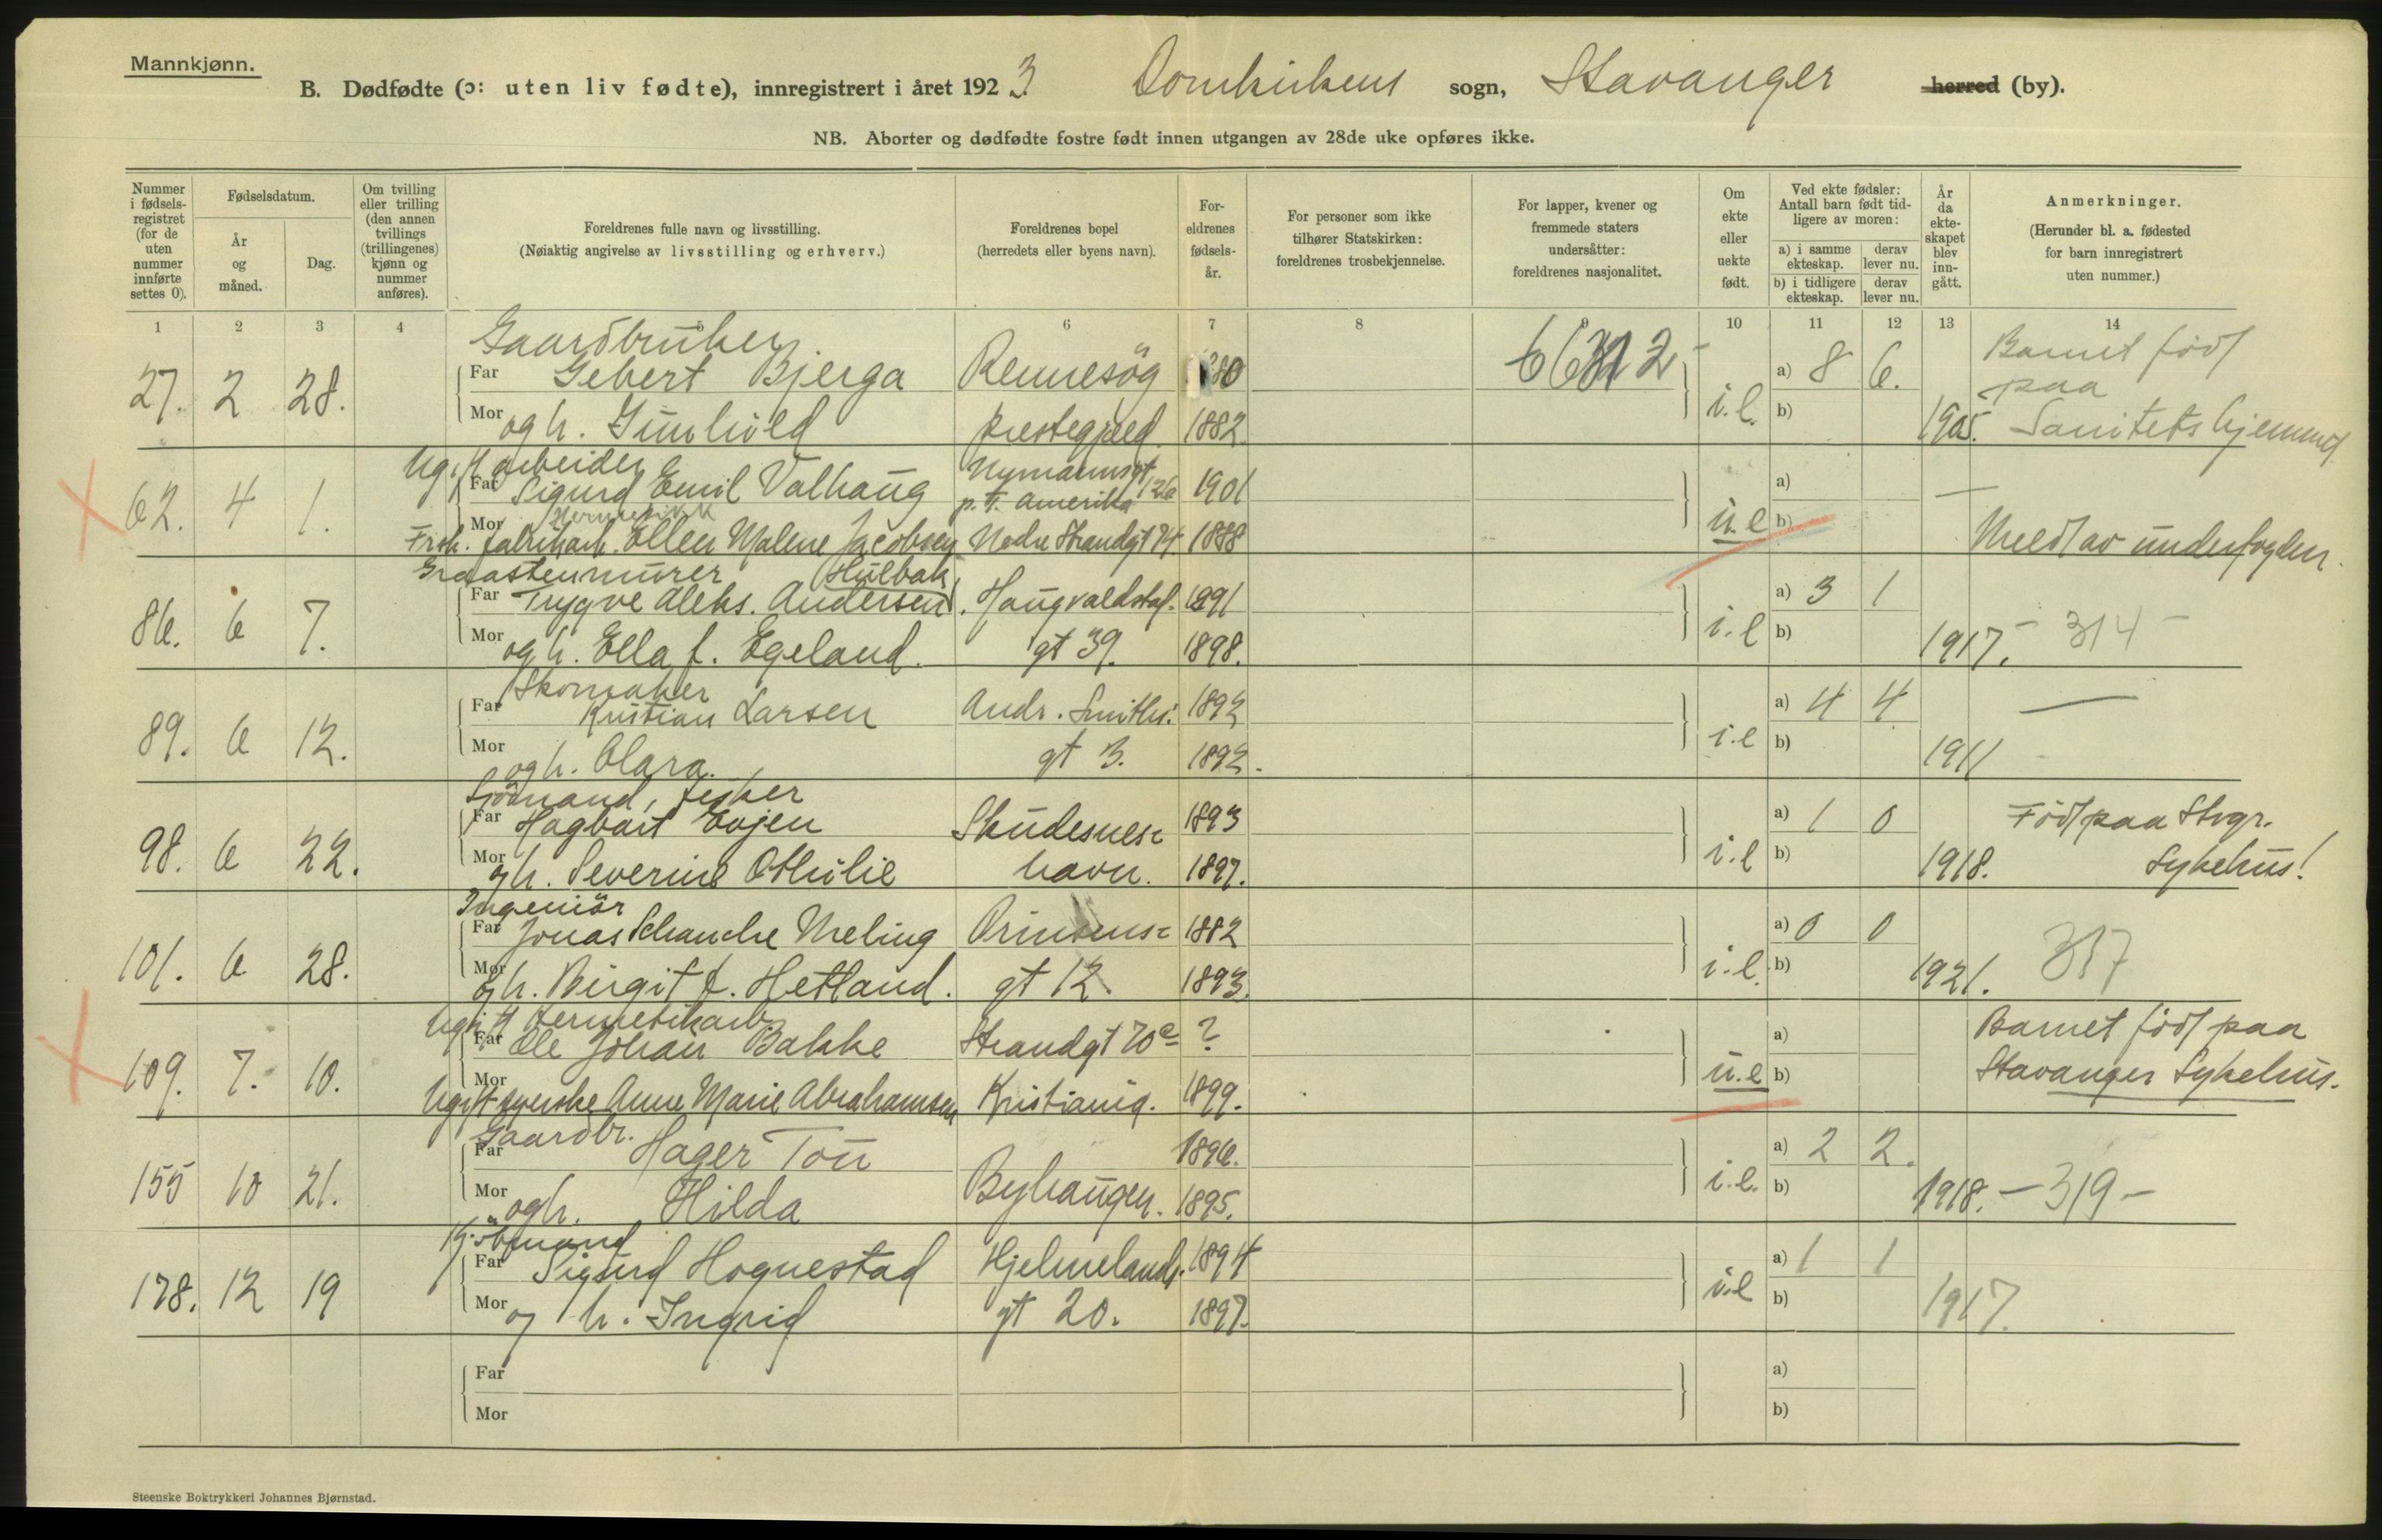 Mannkjønn.
B. Dødfødte (ɔ: uten liv fødte), innregistrert i året 1923 Domkirkens sogn, Stavanger herred (by).
NB. Aborter og dødfødte fostre født innen utgangen av 28de uke opføres ikke.
Nummer i fødsels-registret (for de uten nummer innførte settes 0).
Fødselsdatum.
År og måned.
Dag.
Om tvilling eller trilling (den annen tvillings (trillingenes) kjønn og nummer anføres).
Foreldrenes fulle navn og livsstilling.
(Nøiaktig angivelse av livsstilling og erhverv.)
Foreldrenes bopel
(herredets eller byens navn).
For-eldrenes fødsels-år.
For personer som ikke tilhører Statskirken: foreldrenes trosbekjennelse.
For lapper, kvener og fremmede staters undersåtter: foreldrenes nasjonalitet.
Om ekte eller uekte født.
Ved ekte fødsler: Antall barn født tid-ligere av moren:
a) i samme ekteskap. derav lever nu.
b) i tidligere ekteskap. derav lever nu.
År da ekte-skapet blev inn-gått.
Anmerkninger.
(Herunder bl. a. fødested for barn innregistrert uten nummer.)
1 2 3 4 5 6 7 8 9 10 11 12 13 14
Gaardbruker Barnet född
27. 2 28. Far Gebert Bjerga Rennesög 1880 i.l. a) 8 6. paa
Mor og h. Gunhild prestegjeld. 1882 b) 1905. Sanitetshjemmet
Ugift arbeider Nymannsgt 26
62. 4 1. Far Sigurd Emil Valhaug p.t. Amerika 1901 u.e a) —
Hermetikk
Mor Frk. fabrikarb. Ellen Malene Jacobsen Nedre Strandgt 74 1888 b) Meldt av underfogden.
Graastenmurer Hülbak
86. 6 7. Far Trygve Aleks. Andersen. Haugvaldstad- 1891 i.l a) 3 1
Mor og h. Ella f. Egeland. gt 39. 1898. b) 1917. - 314 -
Skomaker
89. 6 12. Far Kristian Larsen Andr. Smiths. 1892 i.e a) 4 4 —
Mor og h. Clara. gt 3. 1892. b) 1911 -
Sjömand, fisker
98. 6 22. Far Hagbart Evjen Skudesnes- 1893 i.l a) 1 0 Född paa Stvgr.
Mor og h. Severine Othilie havn. 1897. b) 1918. Sykehus!
Ingeniör
101. 6 28. Far Jonas Schanche Meling Prinsens- 1882 i.e. a) 0 0
Mor og h. Birgit f. Hetland. gt 12. 1893. b) 1921. 317
Ugift hermetikarb. Barnet född paa
109. 7. 10. Far Ole Johan Bakke Strandgt 70a ? u.e a) Stavanger Sykehus.
Mor Ugift syerske Anne Marie Abrahamsen Kristiania. 1899. b)
Gaardbr.
155 10 21. Far Hager Tou Byhaugen. 1896. i.e. a) 2 2.
Mor og h. Hilda 1895. b) 1918. - 319 -
Kjöbmand
178. 12 19 Far Sigurd Hognestad Hjelmelands. 1894 i.e a) 1 1
Mor og h. Ingrid gt 20. 1897. b) 1917.
Far a)
Mor b)
Steenske Boktrykkeri Johannes Bjørnstad.